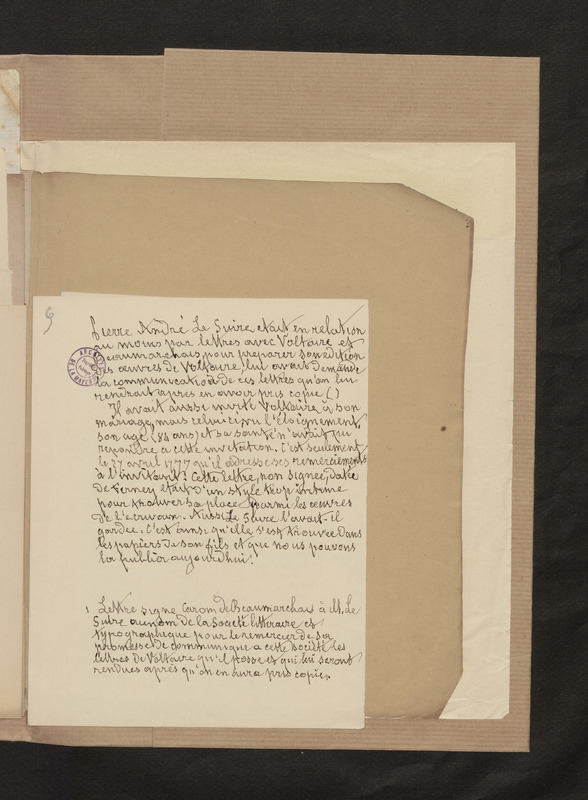 6
Pierre André Le Suire etait en relation
au moins par lettres avec Voltaire et
Beaumarchais, pour preparer son édition
des œuvres de Voltaire, lui avait demandé
la communication de ces lettres qu'on lui
rendrait apres en avoir pris copie ()
Il avait aussi invité Voltaire à son
mariage, mais celui ci vu l'éloignement,
son age (83 ans) et sa santé n'avait pu
repondre a cette invitation. C'est seulement
le 27 avril 1777 qu'il adresse ses remerciements
à l'invitant. Cette lettre, non signée, datée
de Ferney etait d'un style trop intime
pour trouver sa place parmi les œuvres
de l'ecrivain. Aussi Le Suire l'avait-il
gardée. C'est ainsi qu'elle s'est trouvée dans
les papiers de son fils et que nous pouvons
la publier aujourdhui.
1 Lettre signé Caron de Beaumarchais à M. Le
Suire au nom de la Societé litteraire et
typographique pour le remercier de sa
promesse de communique a cette société les
lettres de Voltaire qu'il possse et qui lui seront
rendues après qu'on en aura pris copie.